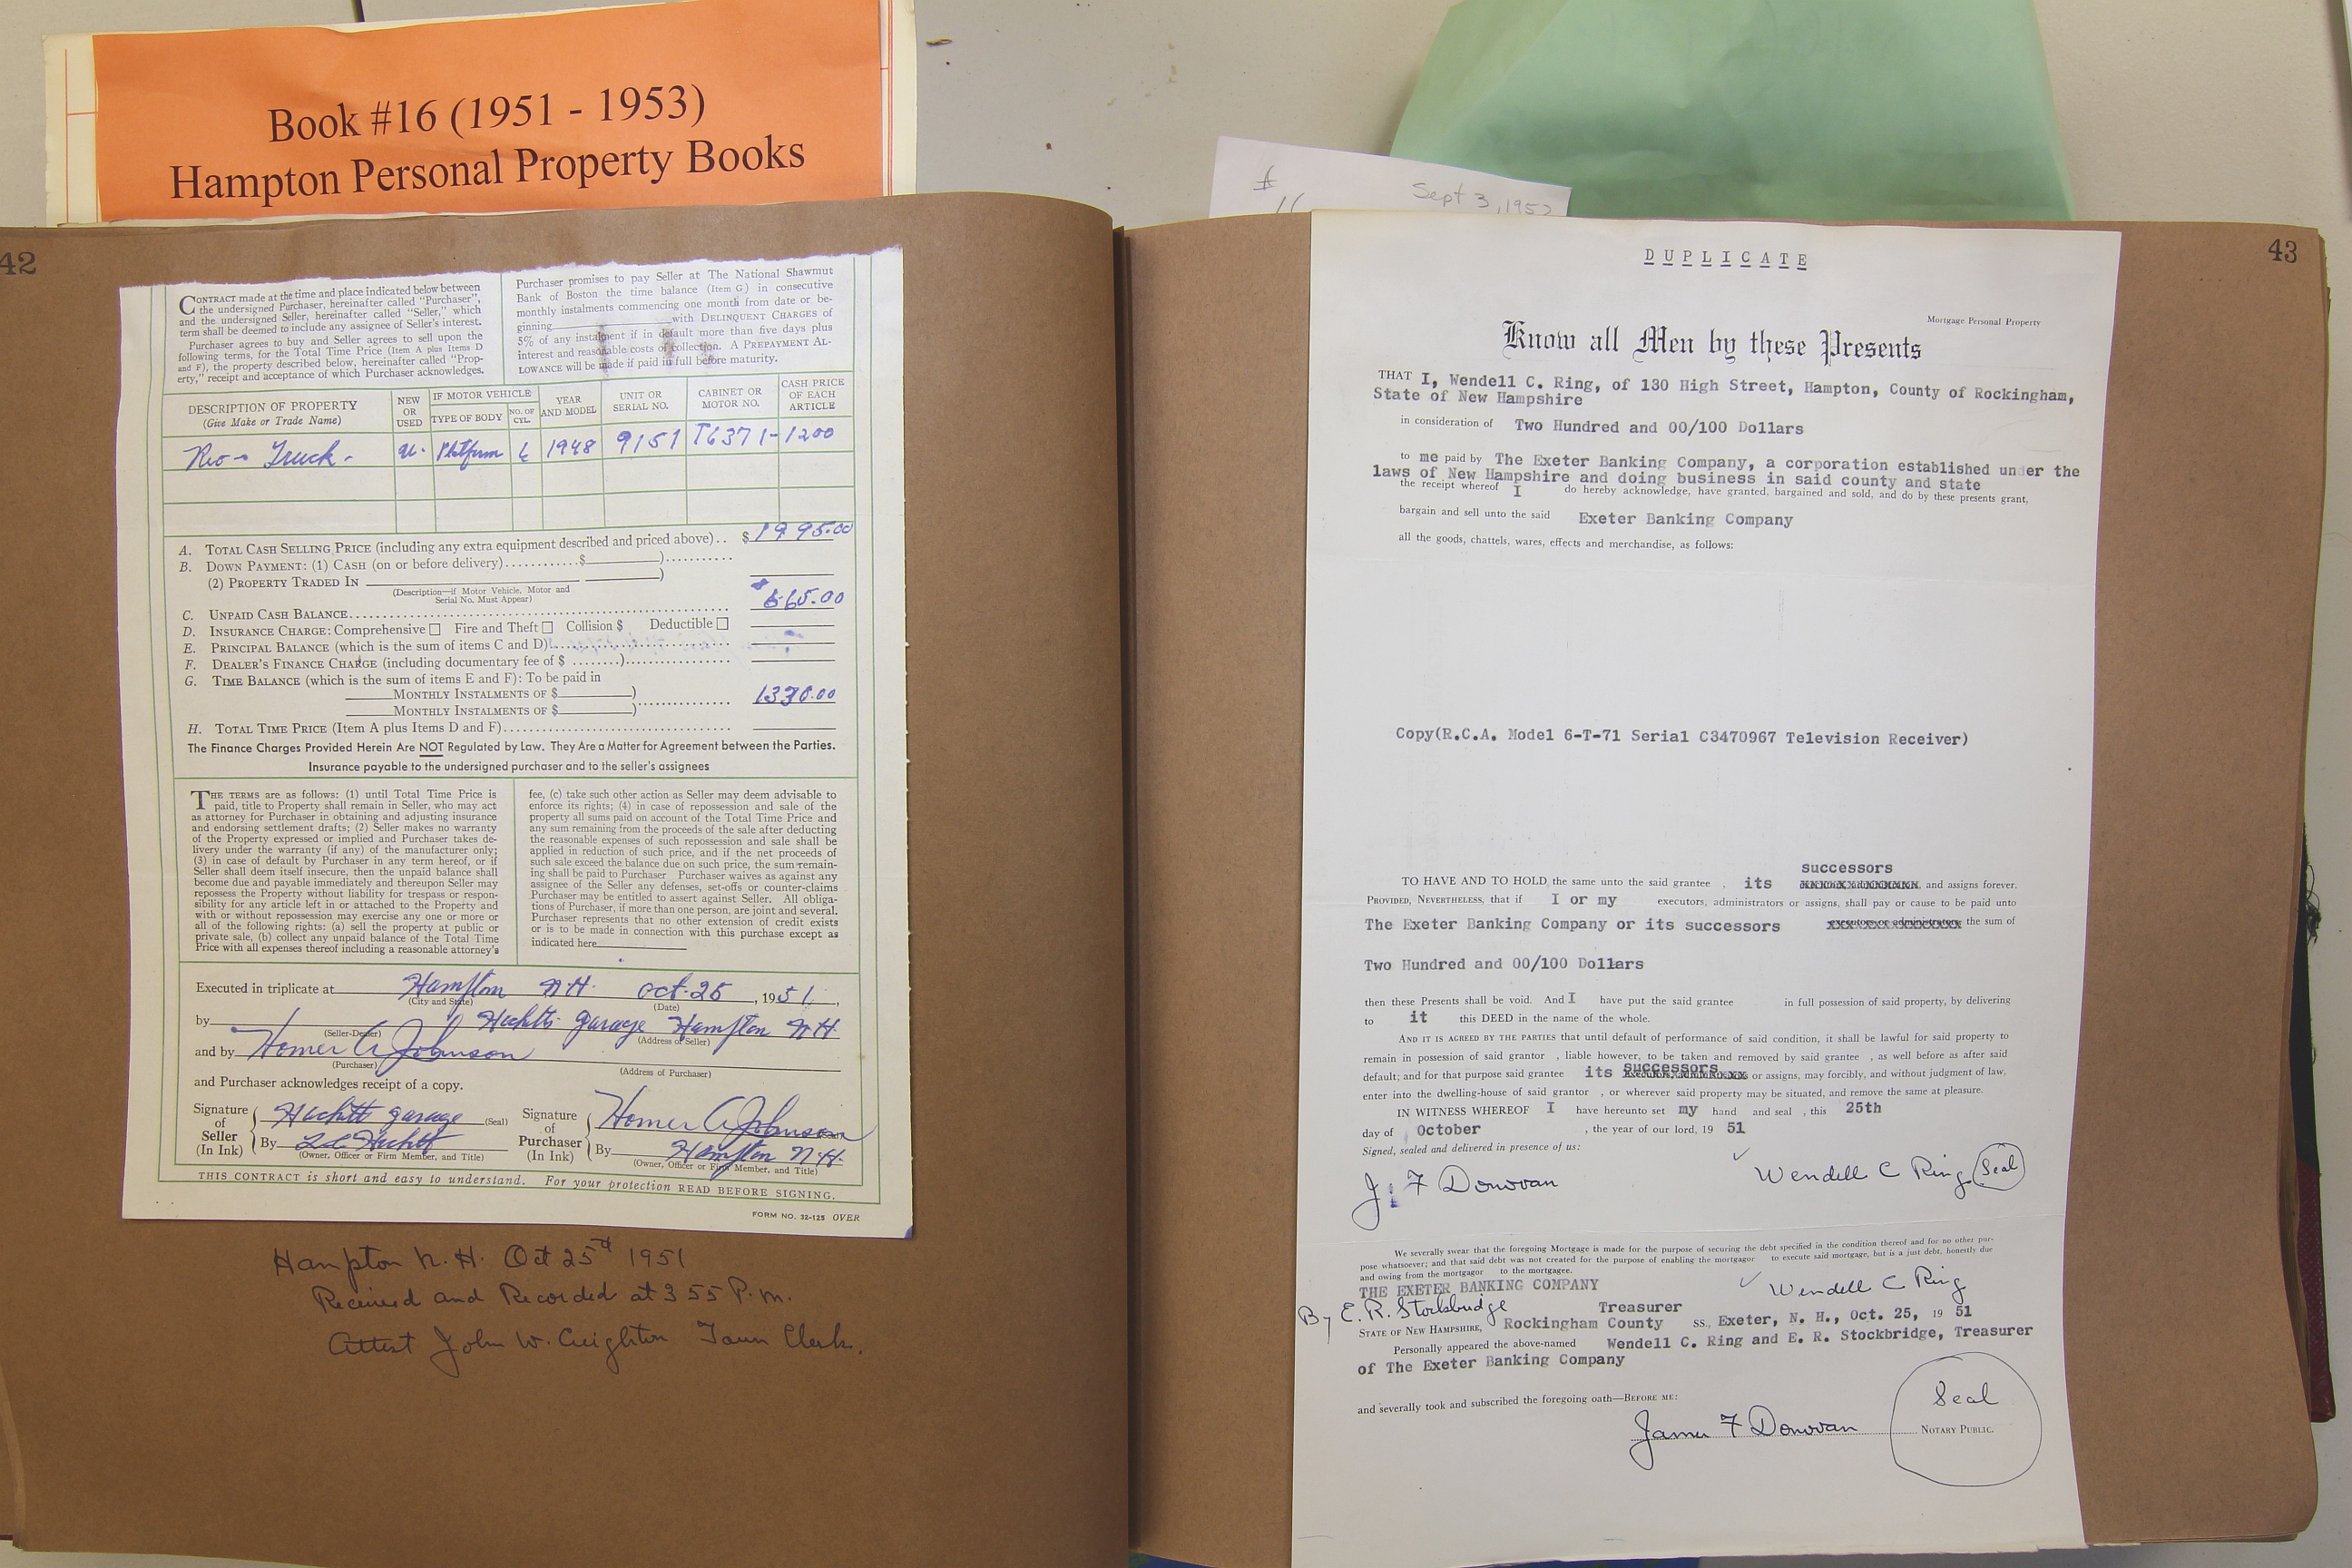 Book #16 (1951 - 1953)
Hampton Personal Property Books
Sept 3, 1952
42
CONTRACT made at the time and place indicated below between
the undersigned Purchaser, hereinafter called "Purchaser",
and the undersigned Seller, hereinafter called "Seller," which
term shall be deemed to include any assignee of Seller's interest.
Purchaser agrees to buy and Seller agrees to sell upon the
following terms, for the Total Time Price (Item A plus Items D
and F), the property described below, hereinafter called "Prop-
erty," receipt and acceptance of which Purchaser acknowledges.
Purchaser promises to pay Seller at The National Shawmut
Bank of Boston the time balance (Item G) in consecutive
monthly instalments commencing one month from date or be-
ginning with DELINQUENT CHARGES of
5% of any instalment if in default more than five days plus
interest and reasonable costs of collection. A PREPAYMENT AL-
LOWANCE will be made if paid in full before maturity.
DESCRIPTION OF PROPERTY
(Give Make or Trade Name)
NEW
OR
USED
IF MOTOR VEHICLE
TYPE OF BODY
NO. OF
CYL.
YEAR
AND MODEL
UNIT OR
SERIAL NO.
CABINET OR
MOTOR NO.
CASH PRICE
OF EACH
ARTICLE
Reo - Truck - U. Platform 6 1948 9151 T6371- 1200
A. TOTAL CASH SELLING PRICE (including any extra equipment described and priced above).. $ 1995.00
B. DOWN PAYMENT: (1) CASH (on or before delivery)............$ )...........
(2) PROPERTY TRADED IN )
(Description—if Motor Vehicle, Motor and
Serial No. Must Appear)
C. UNPAID CASH BALANCE.......... 665.00
D. INSURANCE CHARGE: Comprehensive ☐ Fire and Theft ☐ Collision $ Deductible ☐
E. PRINCIPAL BALANCE (which is the sum of items C and D)..........
F. DEALER'S FINANCE CHARGE (including documentary fee of $ ........)..........
G. TIME BALANCE (which is the sum of items E and F): To be paid in
MONTHLY INSTALMENTS OF $ ) 1330.00
MONTHLY INSTALMENTS OF $ )
H. TOTAL TIME PRICE (Item A plus Items D and F)..........
The Finance Charges Provided Herein Are NOT Regulated by Law. They Are a Matter for Agreement between the Parties.
Insurance payable to the undersigned purchaser and to the seller's assignees
THE TERMS are as follows: (1) until Total Time Price is
paid, title to Property shall remain in Seller, who may act
as attorney for Purchaser in obtaining and adjusting insurance
and endorsing settlement drafts; (2) Seller makes no warranty
of the Property expressed or implied and Purchaser takes de-
livery under the warranty (if any) of the manufacturer only;
(3) in case of default by Purchaser in any term hereof, or if
Seller shall deem itself insecure, then the unpaid balance shall
become due and payable immediately and thereupon Seller may
repossess the Property without liability for trespass or respon-
sibility for any article left in or attached to the Property and
with or without repossession may exercise any one or more or
all of the following rights: (a) sell the property at public or
private sale, (b) collect any unpaid balance of the Total Time
Price with all expenses thereof including a reasonable attorney's
fee, (c) take such other action as Seller may deem advisable to
enforce its rights; (4) in case of repossession and sale of the
property all sums paid on account of the Total Time Price and
any sum remaining from the proceeds of the sale after deducting
the reasonable expenses of such repossession and sale shall be
applied in reduction of such price, and if the net proceeds of
such sale exceed the balance due on such price, the sum remain-
ing shall be paid to Purchaser Purchaser waives as against any
assignee of the Seller any defenses, set-offs or counter-claims
Purchaser may be entitled to assert against Seller. All obliga-
tions of Purchaser, if more than one person, are joint and several.
Purchaser represents that no other extension of credit exists
or is to be made in connection with this purchase except as
indicated here
Executed in triplicate at Hampton N.H. Oct. 25, 1951,
(City and State) (Date)
by Hackett's garage Hampton N.H.
(Seller-Dealer) (Address of Seller)
and by Homer A Johnson
(Purchaser) (Address of Purchaser)
and Purchaser acknowledges receipt of a copy.
Signature
of
Seller
(In Ink)
Hackett garage (Seal)
By Hackett
(Owner, Officer or Firm Member, and Title)
Signature
of
Purchaser
(In Ink)
Homer A Johnson (Seal)
By Hampton N.H.
(Owner, Officer or Firm Member, and Title)
THIS CONTRACT is short and easy to understand. For your protection READ BEFORE SIGNING.
FORM NO. 32-125 OVER
Hampton N.H. Oct 25th 1951
Received and Recorded at 3 55 P.m.
Attest John W. Creighton Town Clerk.
43
DUPLICATE
Mortgage Personal Property
Know all Men by these Presents
THAT I, Wendell C. Ring, of 130 High Street, Hampton, County of Rockingham,
State of New Hampshire
in consideration of Two Hundred and 00/100 Dollars
to me paid by The Exeter Banking Company, a corporation established under the
laws of New Hampshire and doing business in said county and state
the receipt whereof I do hereby acknowledge, have granted, bargained and sold, and do by these presents grant,
bargain and sell unto the said Exeter Banking Company
all the goods, chattels, wares, effects and merchandise, as follows:
Copy(R.C.A. Model 6-T-71 Serial C3470967 Television Receiver)
successors
TO HAVE AND TO HOLD the same unto the said grantee , its and assigns forever.
PROVIDED, NEVERTHELESS, that if I or my executors, administrators or assigns, shall pay or cause to be paid unto
The Exeter Banking Company or its successors executors or administrators the sum of
Two Hundred and 00/100 Dollars
then these Presents shall be void. And I have put the said grantee in full possession of said property, by delivering
to it this DEED in the name of the whole.
AND IT IS AGREED BY THE PARTIES that until default of performance of said condition, it shall be lawful for said property to
remain in possession of said grantor , liable however, to be taken and removed by said grantee , as well before as after said
default; and for that purpose said grantee its successors or assigns, may forcibly, and without judgment of law,
enter into the dwelling-house of said grantor , or wherever said property may be situated, and remove the same at pleasure.
IN WITNESS WHEREOF I have hereunto set my hand and seal , this 25th
day of October , the year of our lord, 19 51
Signed, sealed and delivered in presence of us:
J. F Donovan Wendell C Ring Seal
We severally swear that the foregoing Mortgage is made for the purpose of securing the debt specified in the condition thereof and for no other pur-
pose whatsoever; and that said debt was not created for the purpose of enabling the mortgagor to execute said mortgage, but is a just debt, honestly due
and owing from the mortgagor to the mortgagee.
THE EXETER BANKING COMPANY Wendell C Ring
By E. R. Stockbridge Treasurer
STATE OF NEW HAMPSHIRE, Rockingham County SS., Exeter, N. H., Oct. 25, 19 51
Personally appeared the above-named Wendell C. Ring and E. R. Stockbridge, Treasurer
of The Exeter Banking Company
and severally took and subscribed the foregoing oath—BEFORE ME:
James F Donovan Seal
NOTARY PUBLIC.